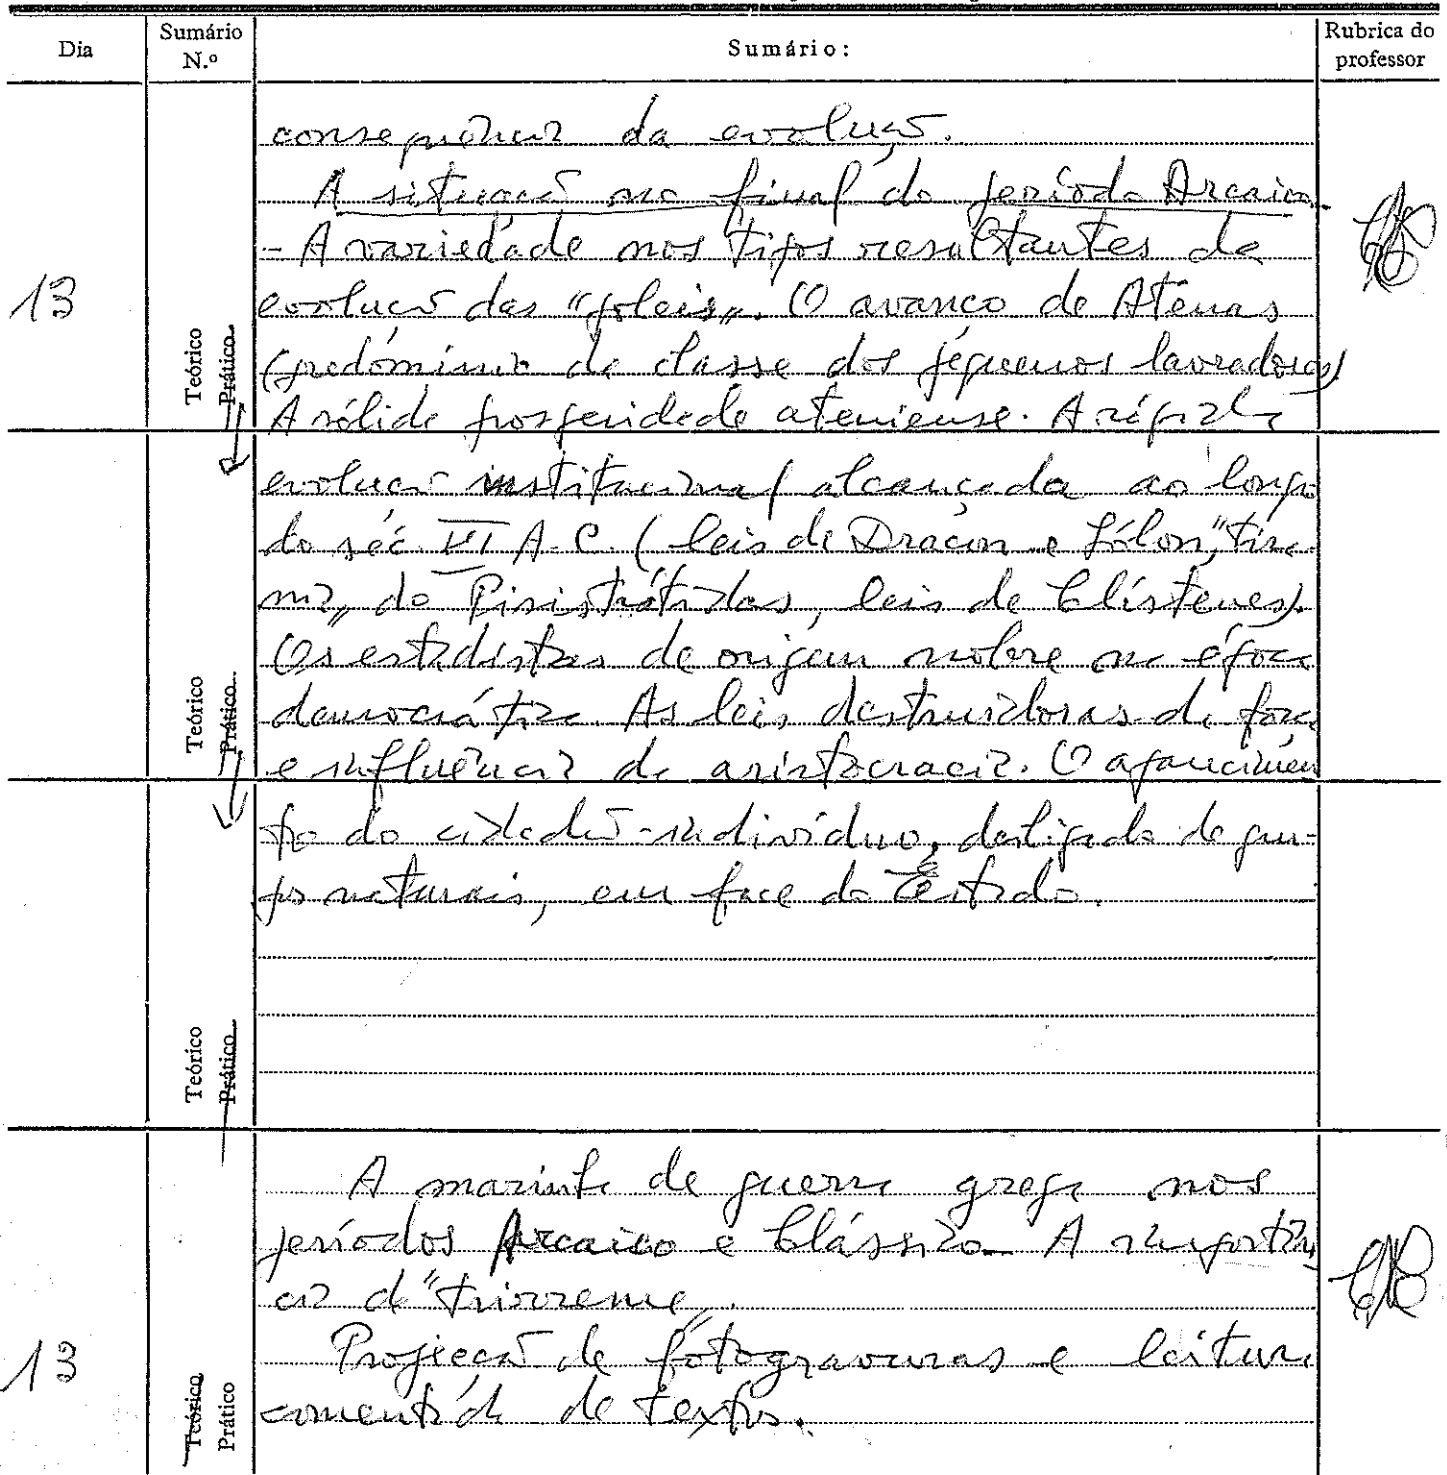 Dia
Sumário N.º
Sumário:
Rubrica do professor
consequência da evolução.
A situação no final do período Arcaico
- A variedade nos tipos resultantes da
13
evolução das "poleis". O avanço de Atenas
(predomínio da classe dos pequenos lavradores)
Teórico
Prático
A sólida prosperidade ateniense. A rápida
evolução institucional alcançada ao longo
do séc. VI A.C. (leis de Drácon e Sólon, "tira
nia" do Pisistrátidas, leis de Clístenes).
Os estadistas de origem nobre na época
democrática. As leis destruidoras da força
Teórico
Prático
e influência da aristocracia. O aparecimen
to do cidadão-indivíduo, desligado de gru-
pos naturais, em face do Estado.
Teórico
Prático
A marinha de guerra grega nos
períodos Arcaico e Clássico. A importân
cia da "trirreme".
13
Projecção de fotogravuras e leitura
comentada de textos.
Teórico
Prático